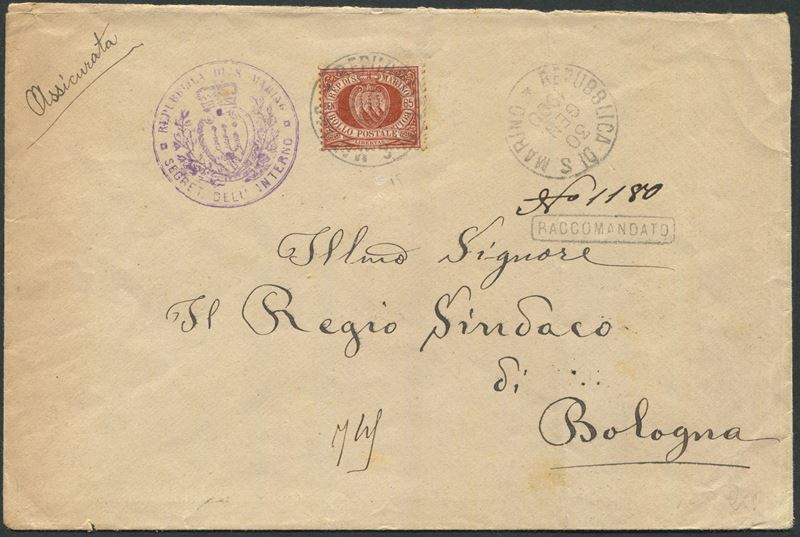 Assicurata
REPUBBLICA DI S. MARINO
SEGRET. DELL' INTERNO
REP. DI S. MARINO
BOLLO POSTALE
LIBERTAS
REPUBBLICA DI S. MARINO
No 1180
RACCOMANDATO
Illmo Signore
Il Regio Sindaco
di
Bologna